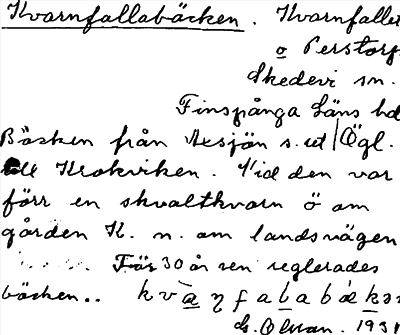 Kvarnfallabäcken. Kvarnfallet
o Perstorp
Skedevi sn.
Finspånga Läns hd
Bäcken från Axsjön s. ut Ögl.
till Krokviken. Vid den var
förr en skvaltkvarn ö om
gården K. n. om landsvägen
För 30 år sen reglerades
bäcken..
193